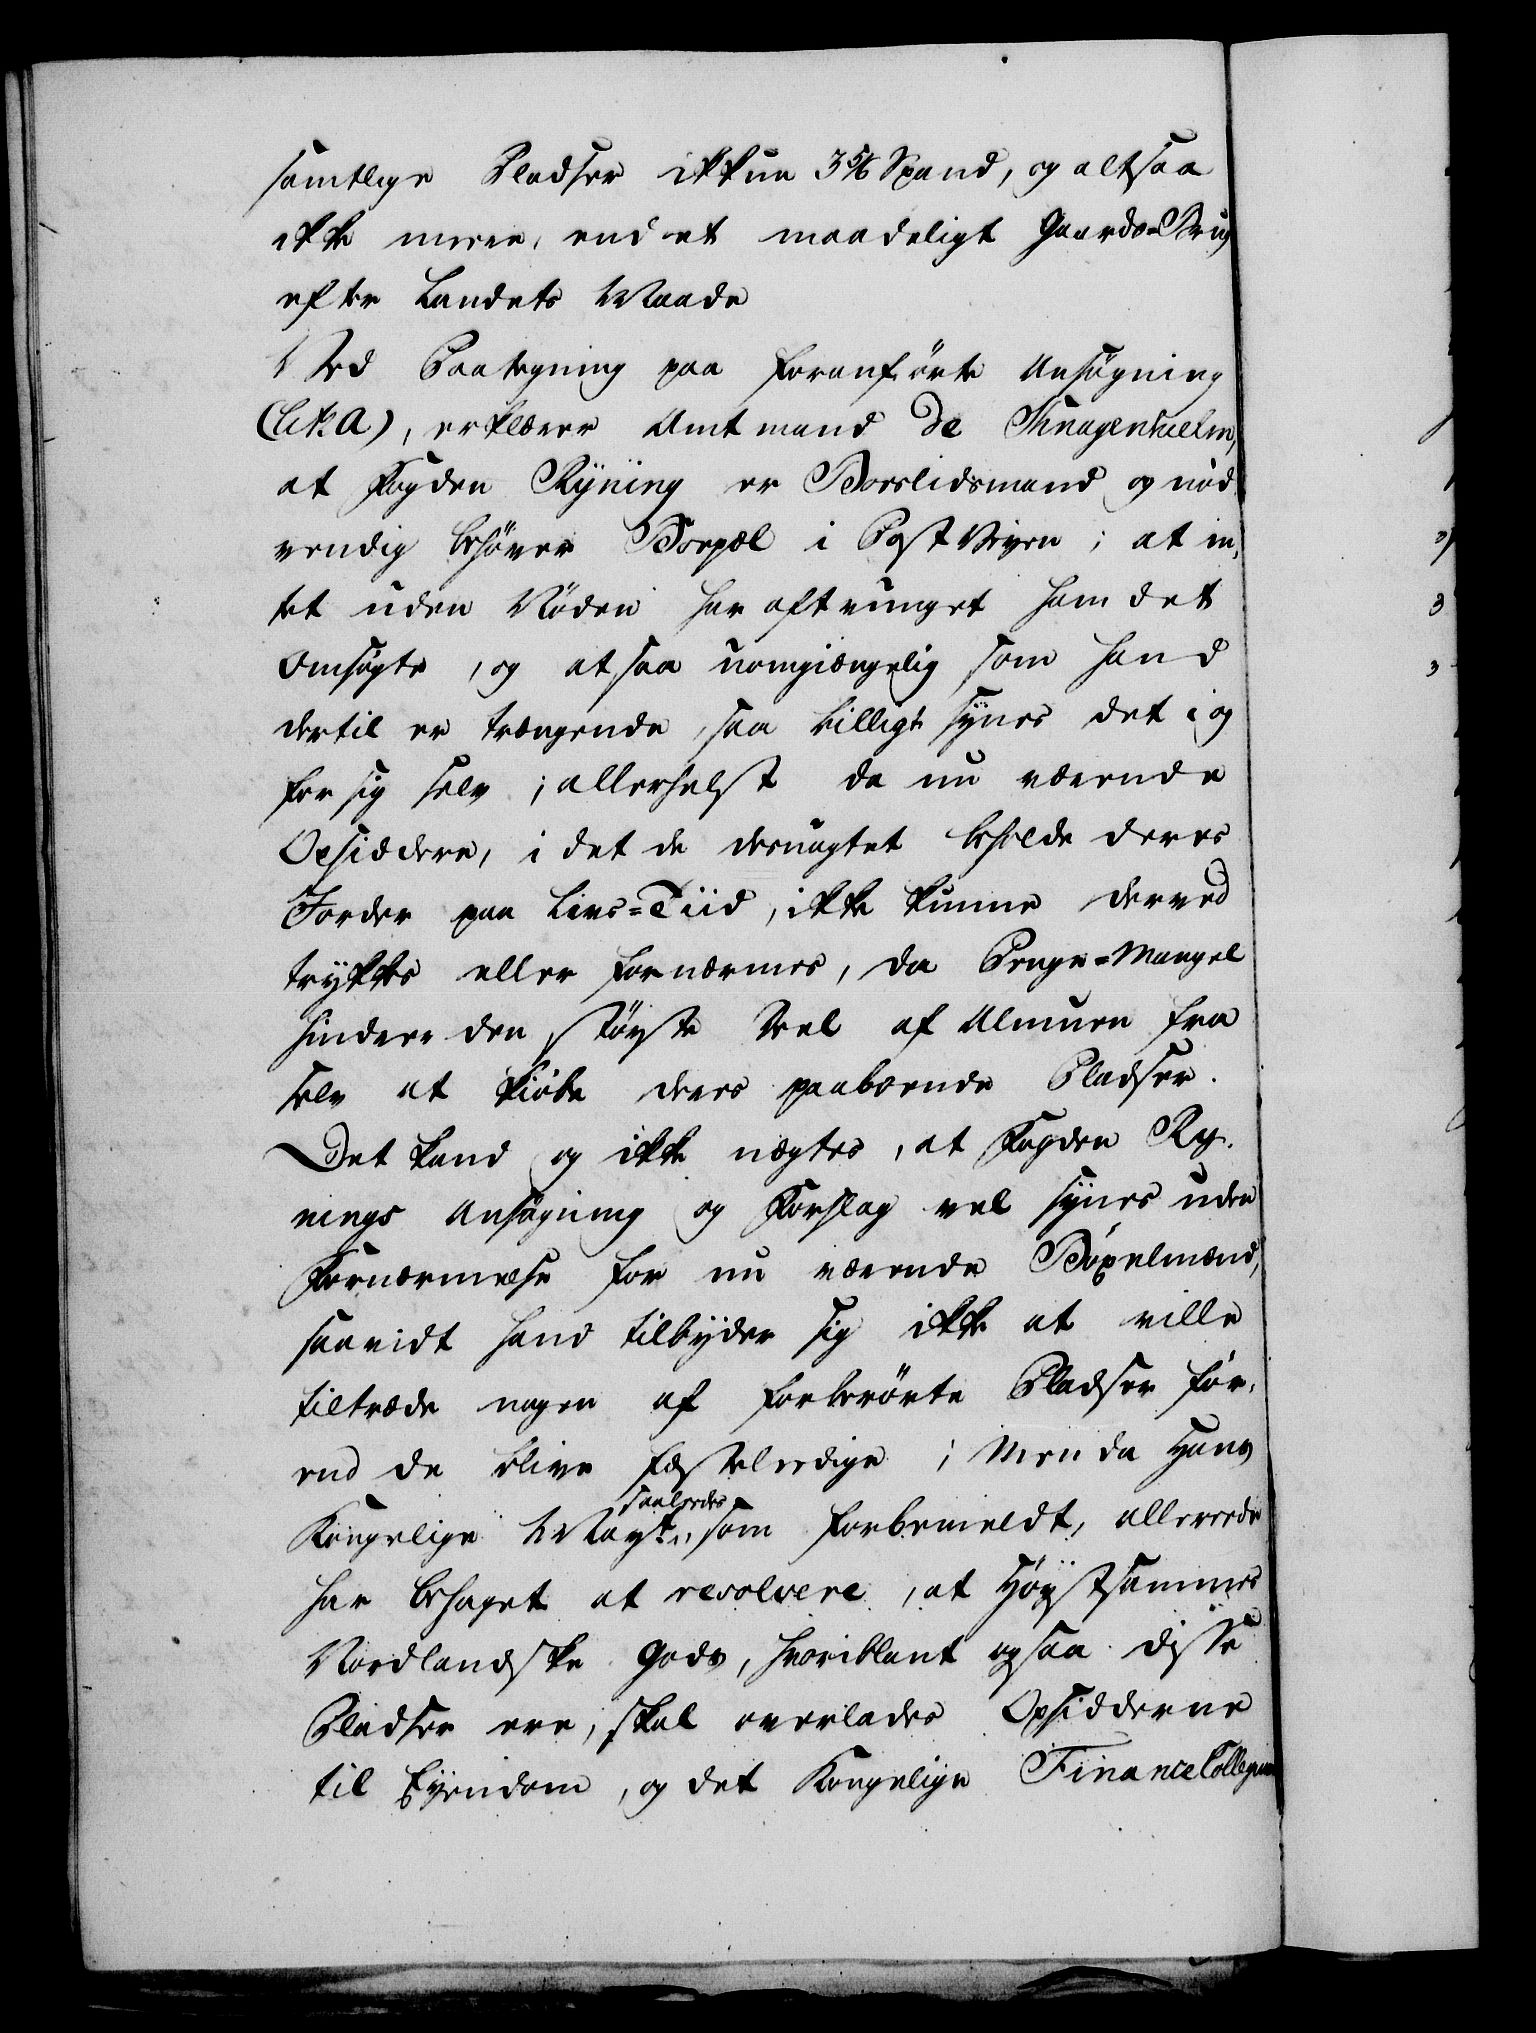 samtlige Pladser ikkun 3 5/6 Spand, og altsaa
ikke meere, end et maadeligt Gaards-Brug
efter Landets Maade
Ved Paategning paa foranførte Ansøgning
(Lit. A), erklærer Amtmand de Knagenhielm,
at Fogden Ryning er Boeslidsmand og nød
vendig behøver Boepæl i Post Veyen; at in,
tet uden Nøden har aftvunget ham det
Omsøgte, og at saa uomgiængelig som hand
dertil er trængende, saa billigt synes det i og
for sig selv; allerhelst da nu værende
Opsiddere, i det de desuagtet beholde deres
Jorder paa Livs=Tiid, ikke kunne derved
trykkes eller fornærmes, da Penge=Mangel
hindrer den største Deel af Almuen fra
selv at kiøbe deres paaboende Pladser.
Det kand og ikke nægtes, at Fogden Ry,
nings Ansøgning og Forslag vel synes uden
Fornærmelse for nu værende Bøxelmænd,
saavidt hand tilbyder sig ikke at ville
tiltræde nogen af forberørte Pladser før,
end de blive fæsteledige; Men da Hans
Kongelige Mayt. saaledes som forbemeldt, allereede
har behaget at resolvere, at Høystsammes
Nordlandske Gods, hvoriblant ogsaa disse
Pladser ere, skal overlades Opsidderne
til Eyendom, og det Kongelige Finance Collegium